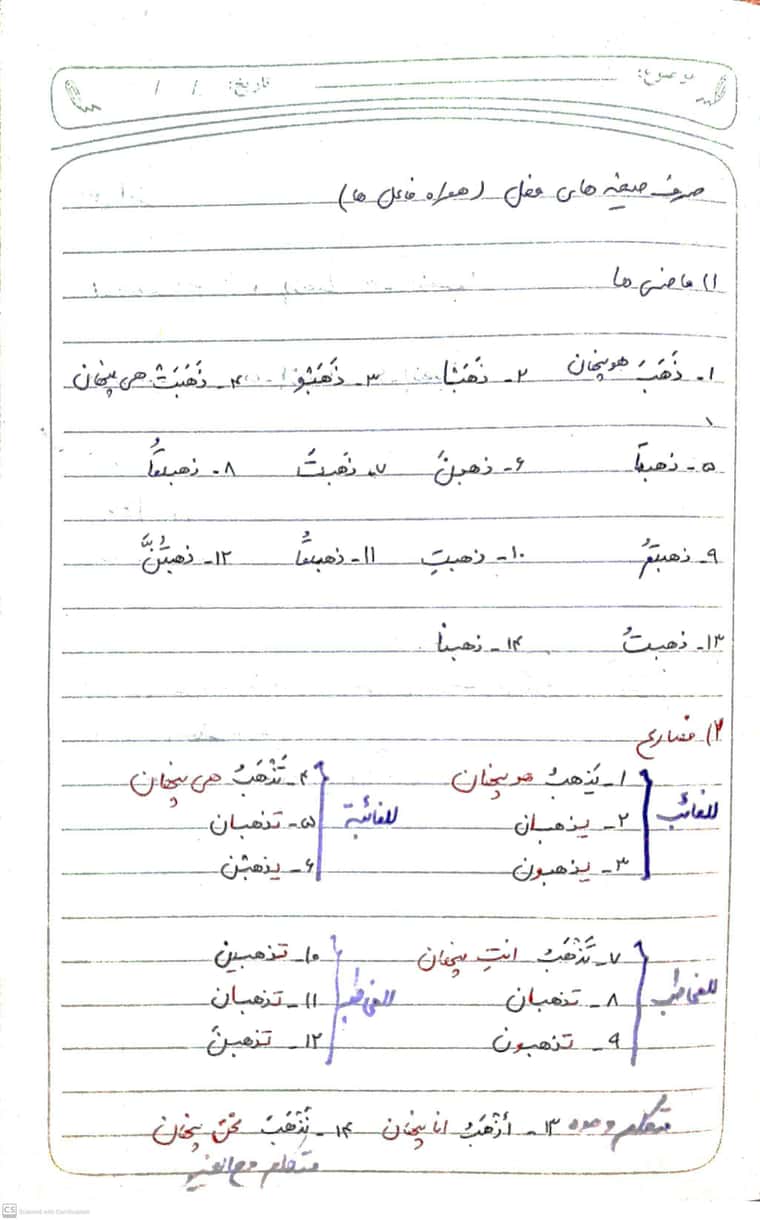 موضوع: تاریخ: / /
صرف صیغه های فعل (همراه فاعل ها)
۱) ماضی ها
۱- ذَهَبَ هو پنهان ۲- ذَهَبَا ۳- ذَهَبُو ۴- ذَهَبَتْ هی پنهان
۵- ذهبتَا ۶- ذهبنَ ۷- ذَهبتَ ۸- ذهبتُمَا
۹- ذهبتُم ۱۰- ذهبتِ ۱۱- ذهبتُما ۱۲- ذهبتُنَّ
۱۳- ذهبتُ ۱۴- ذهبنا
۲) مضارع
للغائب ۱- یَذهبُ هو پنهان للغائبة ۴- تَذْهَبُ هی پنهان
۲- یذهبان ۵- تذهبان
۳- یذهبون ۶- یذهبْن
للمخاطب ۷- تَذْهَبُ انتِ پنهان ۱۰- تذهبین
۸- تذهبان للمخاطبة ۱۱- تذهبان
۹- تذهبون ۱۲- تذهبنَ
متکلم وحده ۱۳- أذْهَبُ انا پنهان ۱۴- نَذْهَبُ نحن پنهان
متکلم مع الغیر
CS Scanned with CamScanner